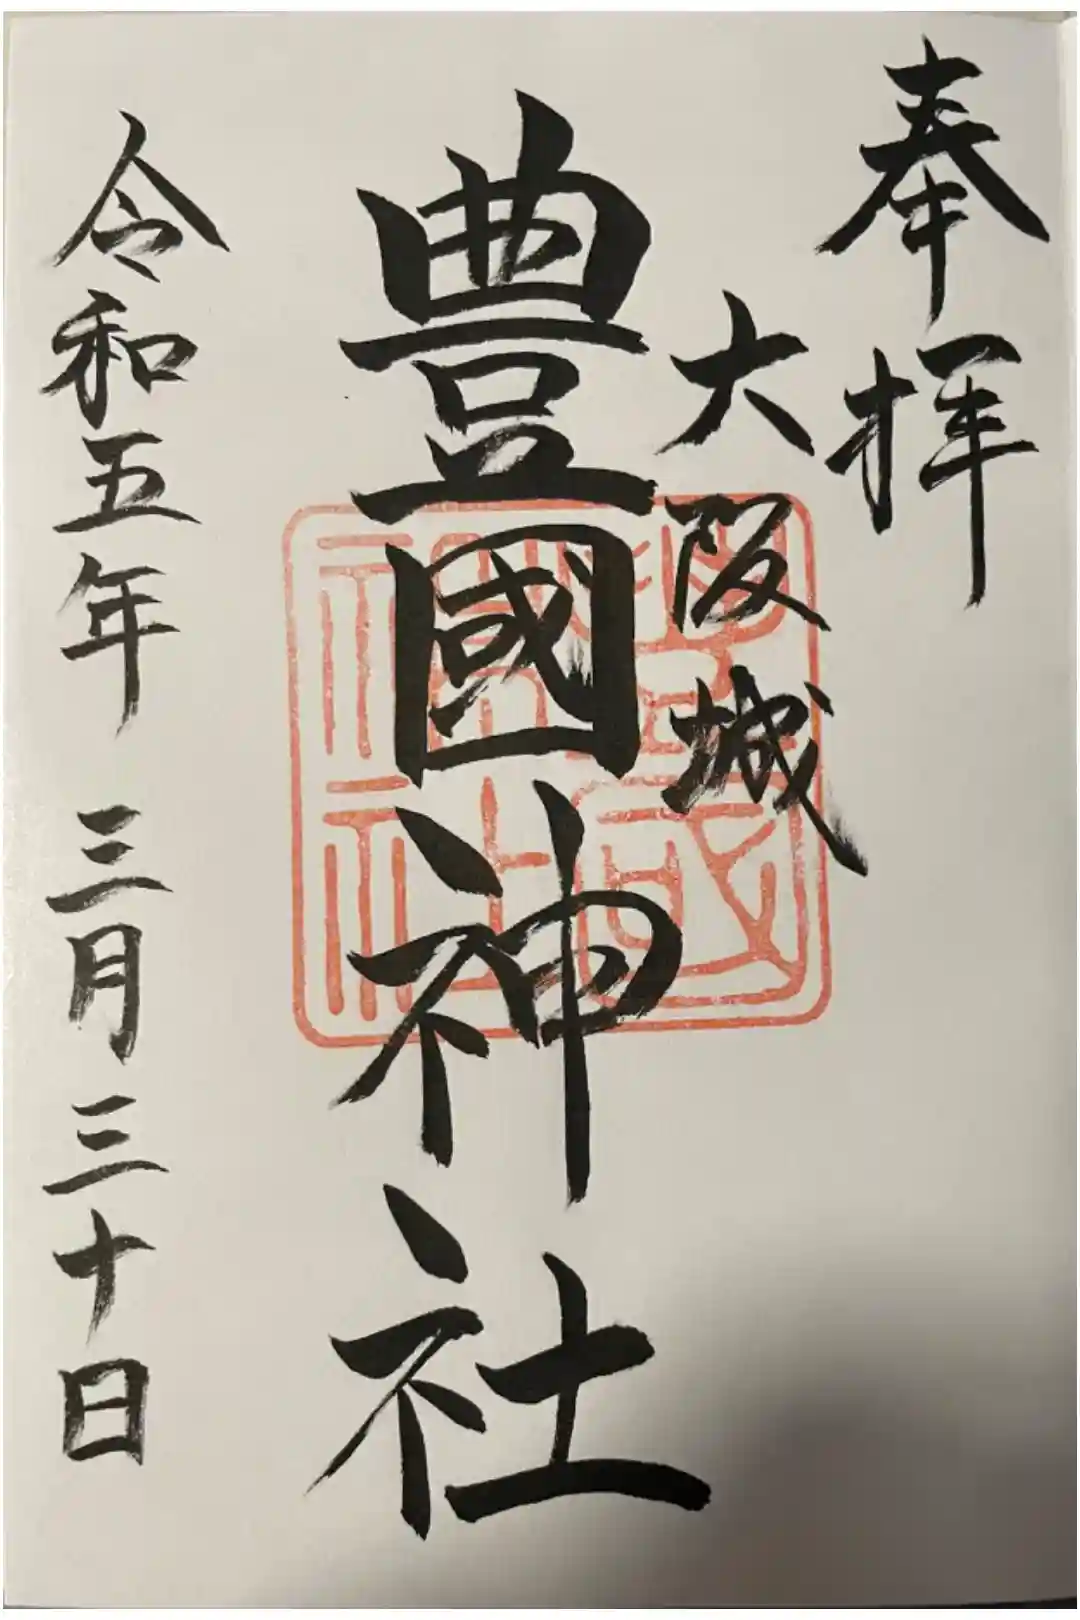 奉拝
大阪城
豊國神社
令和五年 三月三十日